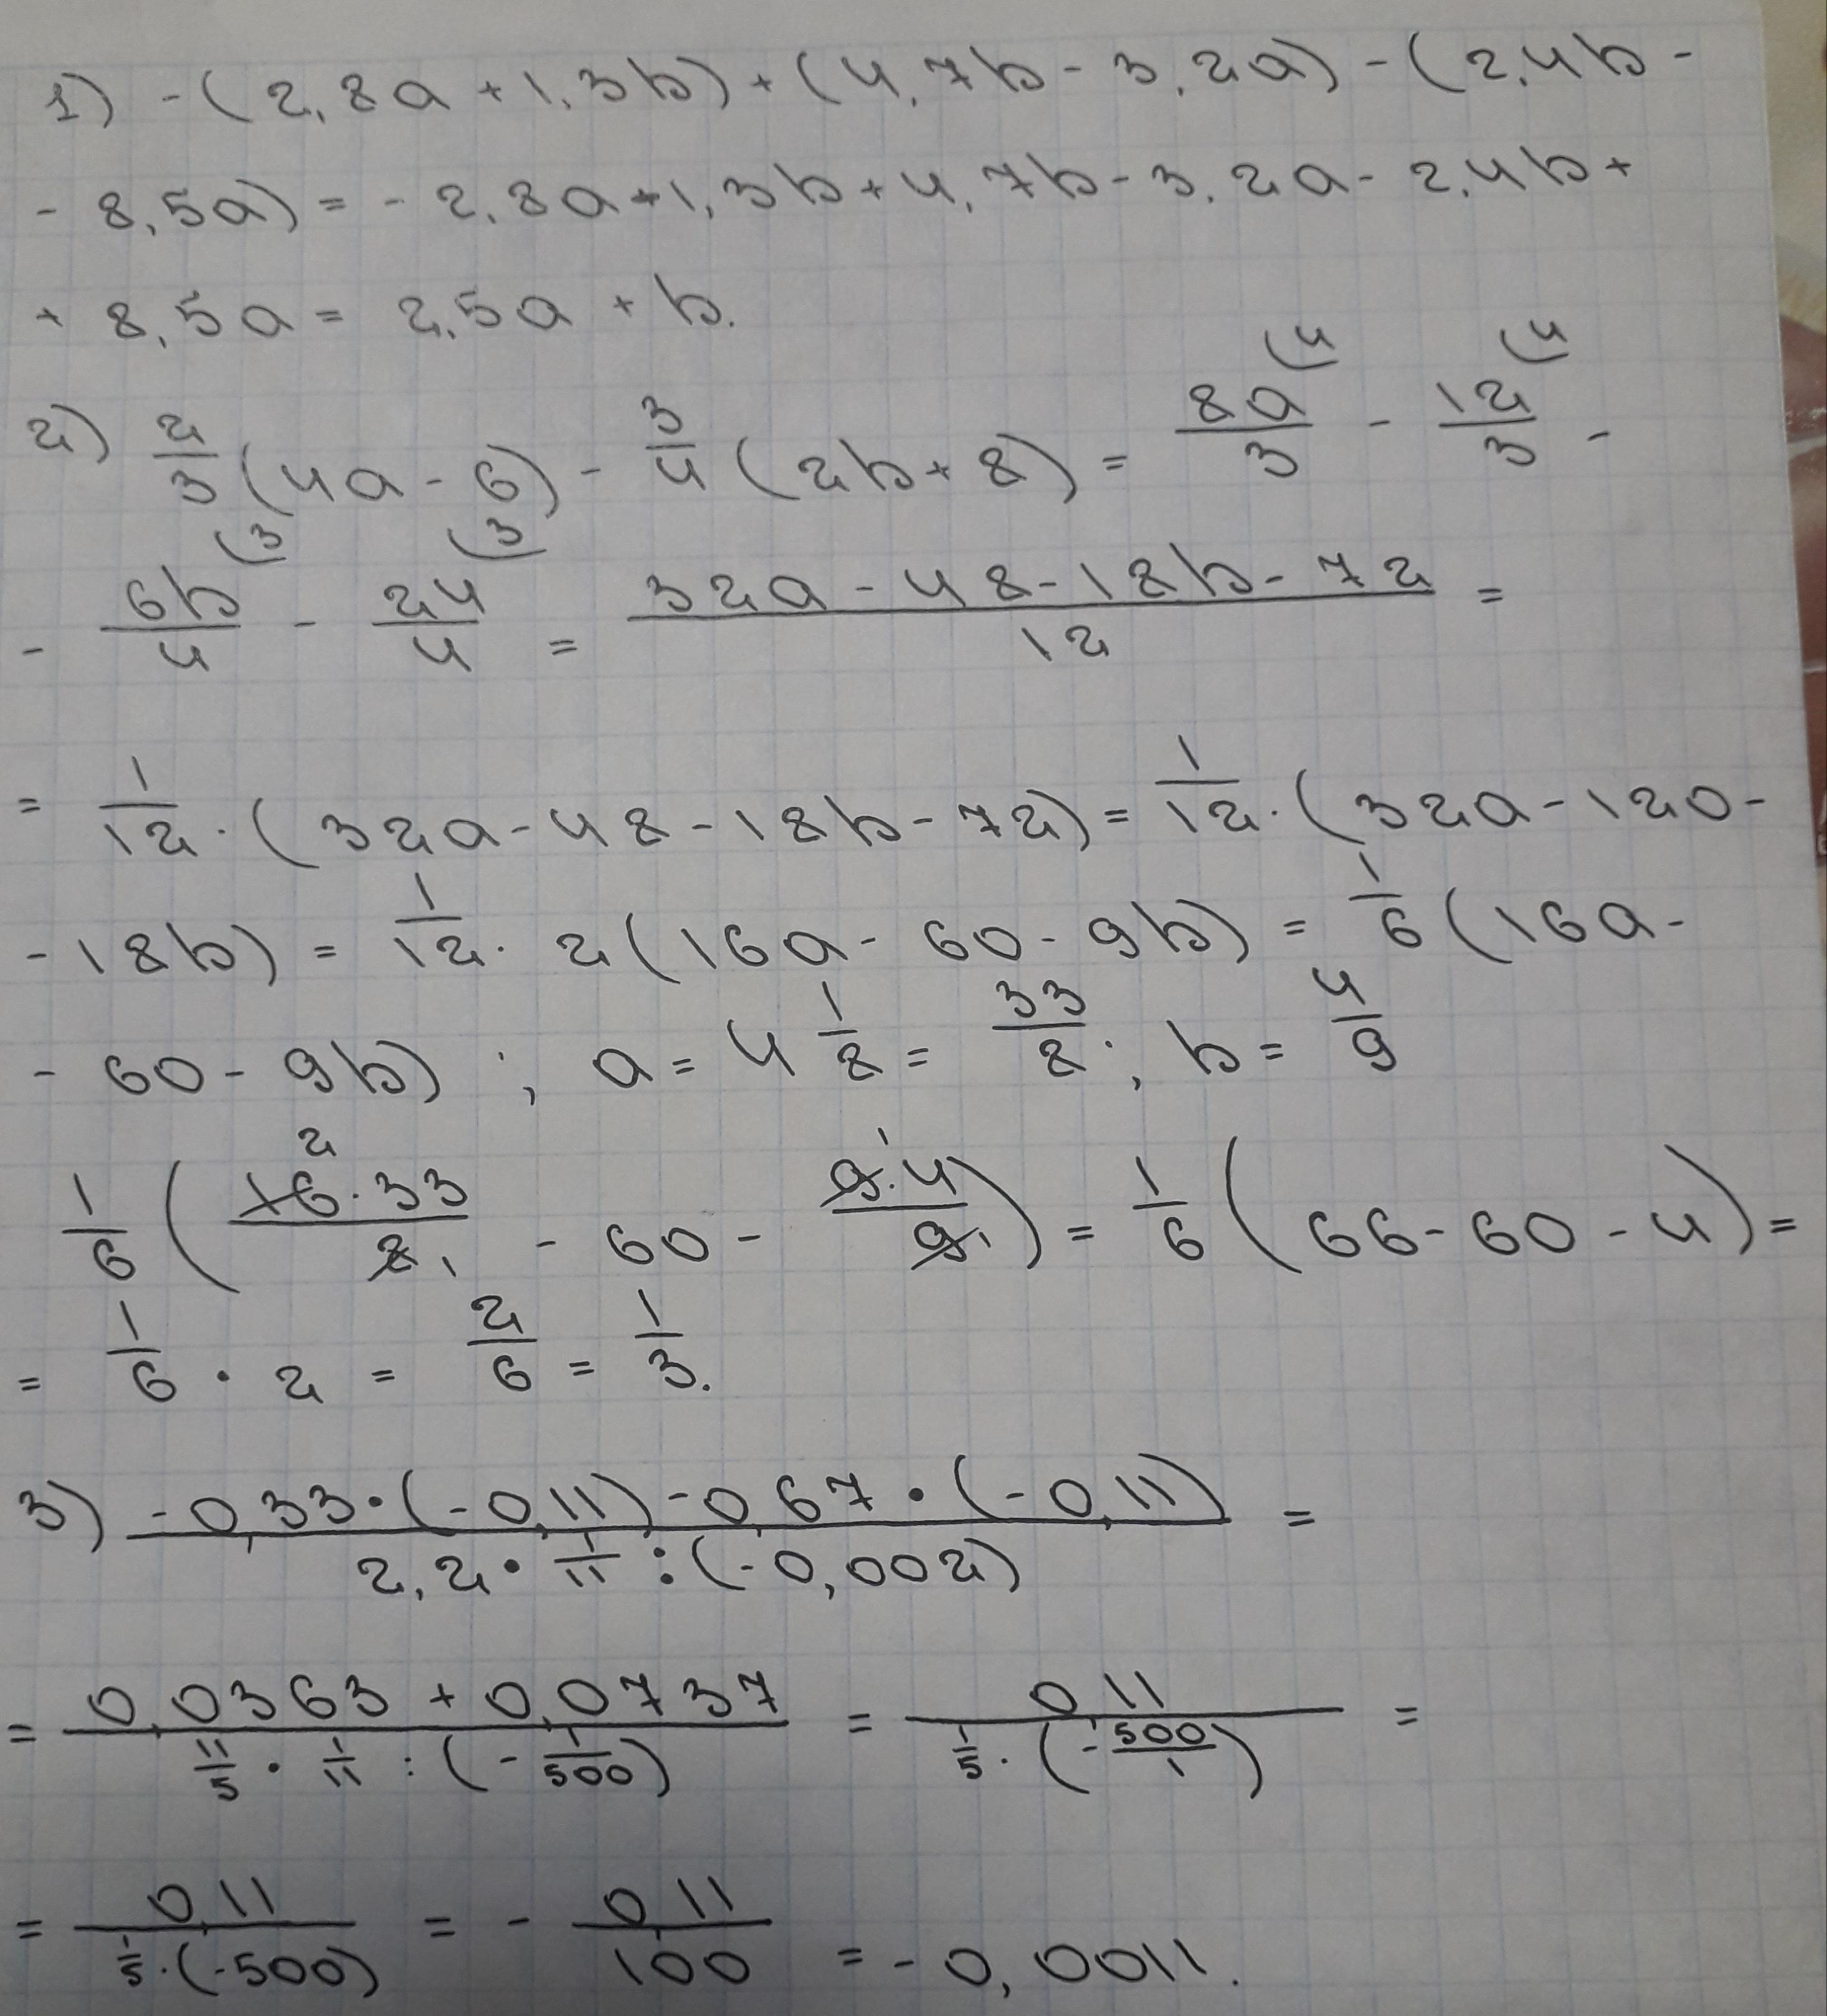 1) -(2,8a + 1,3b) + (4,7b - 3,2a) - (2,4b -
- 8,5a) = - 2,8a + 1,3b + 4,7b - 3,2a - 2,4b +
+ 8,5a = 2,5a + b.
2) 2/3 (4a - 6) - 3/4 (2b + 8) = 8a/3 (4 - 12/3 (4 -
- 6b/4 (3 - 24/4 (3 = (32a - 48 - 18b - 72)/12 =
= 1/12 · (32a - 48 - 18b - 72) = 1/12 · (32a - 120 -
- 18b) = 1/12 · 2(16a - 60 - 9b) = 1/6 (16a -
- 60 - 9b) ; a = 4 1/8 = 33/8 ; b = 4/9
1/6 (16 2 · 33 / 8 1 - 60 - 9 1 · 4 / 9 1) = 1/6 (66 - 60 - 4) =
= 1/6 · 2 = 2/6 = 1/3.
3) (-0,33 · (-0,11) - 0,67 · (-0,11))/(2,2 · 1/11 : (-0,002)) =
= (0,0363 + 0,0737)/(11/5 · 1/11 : (-1/500)) = 0,11/(1/5 · (-500/1)) =
= 0,11/(1/5 · (-500)) = - 0,11/100 = - 0,0011.